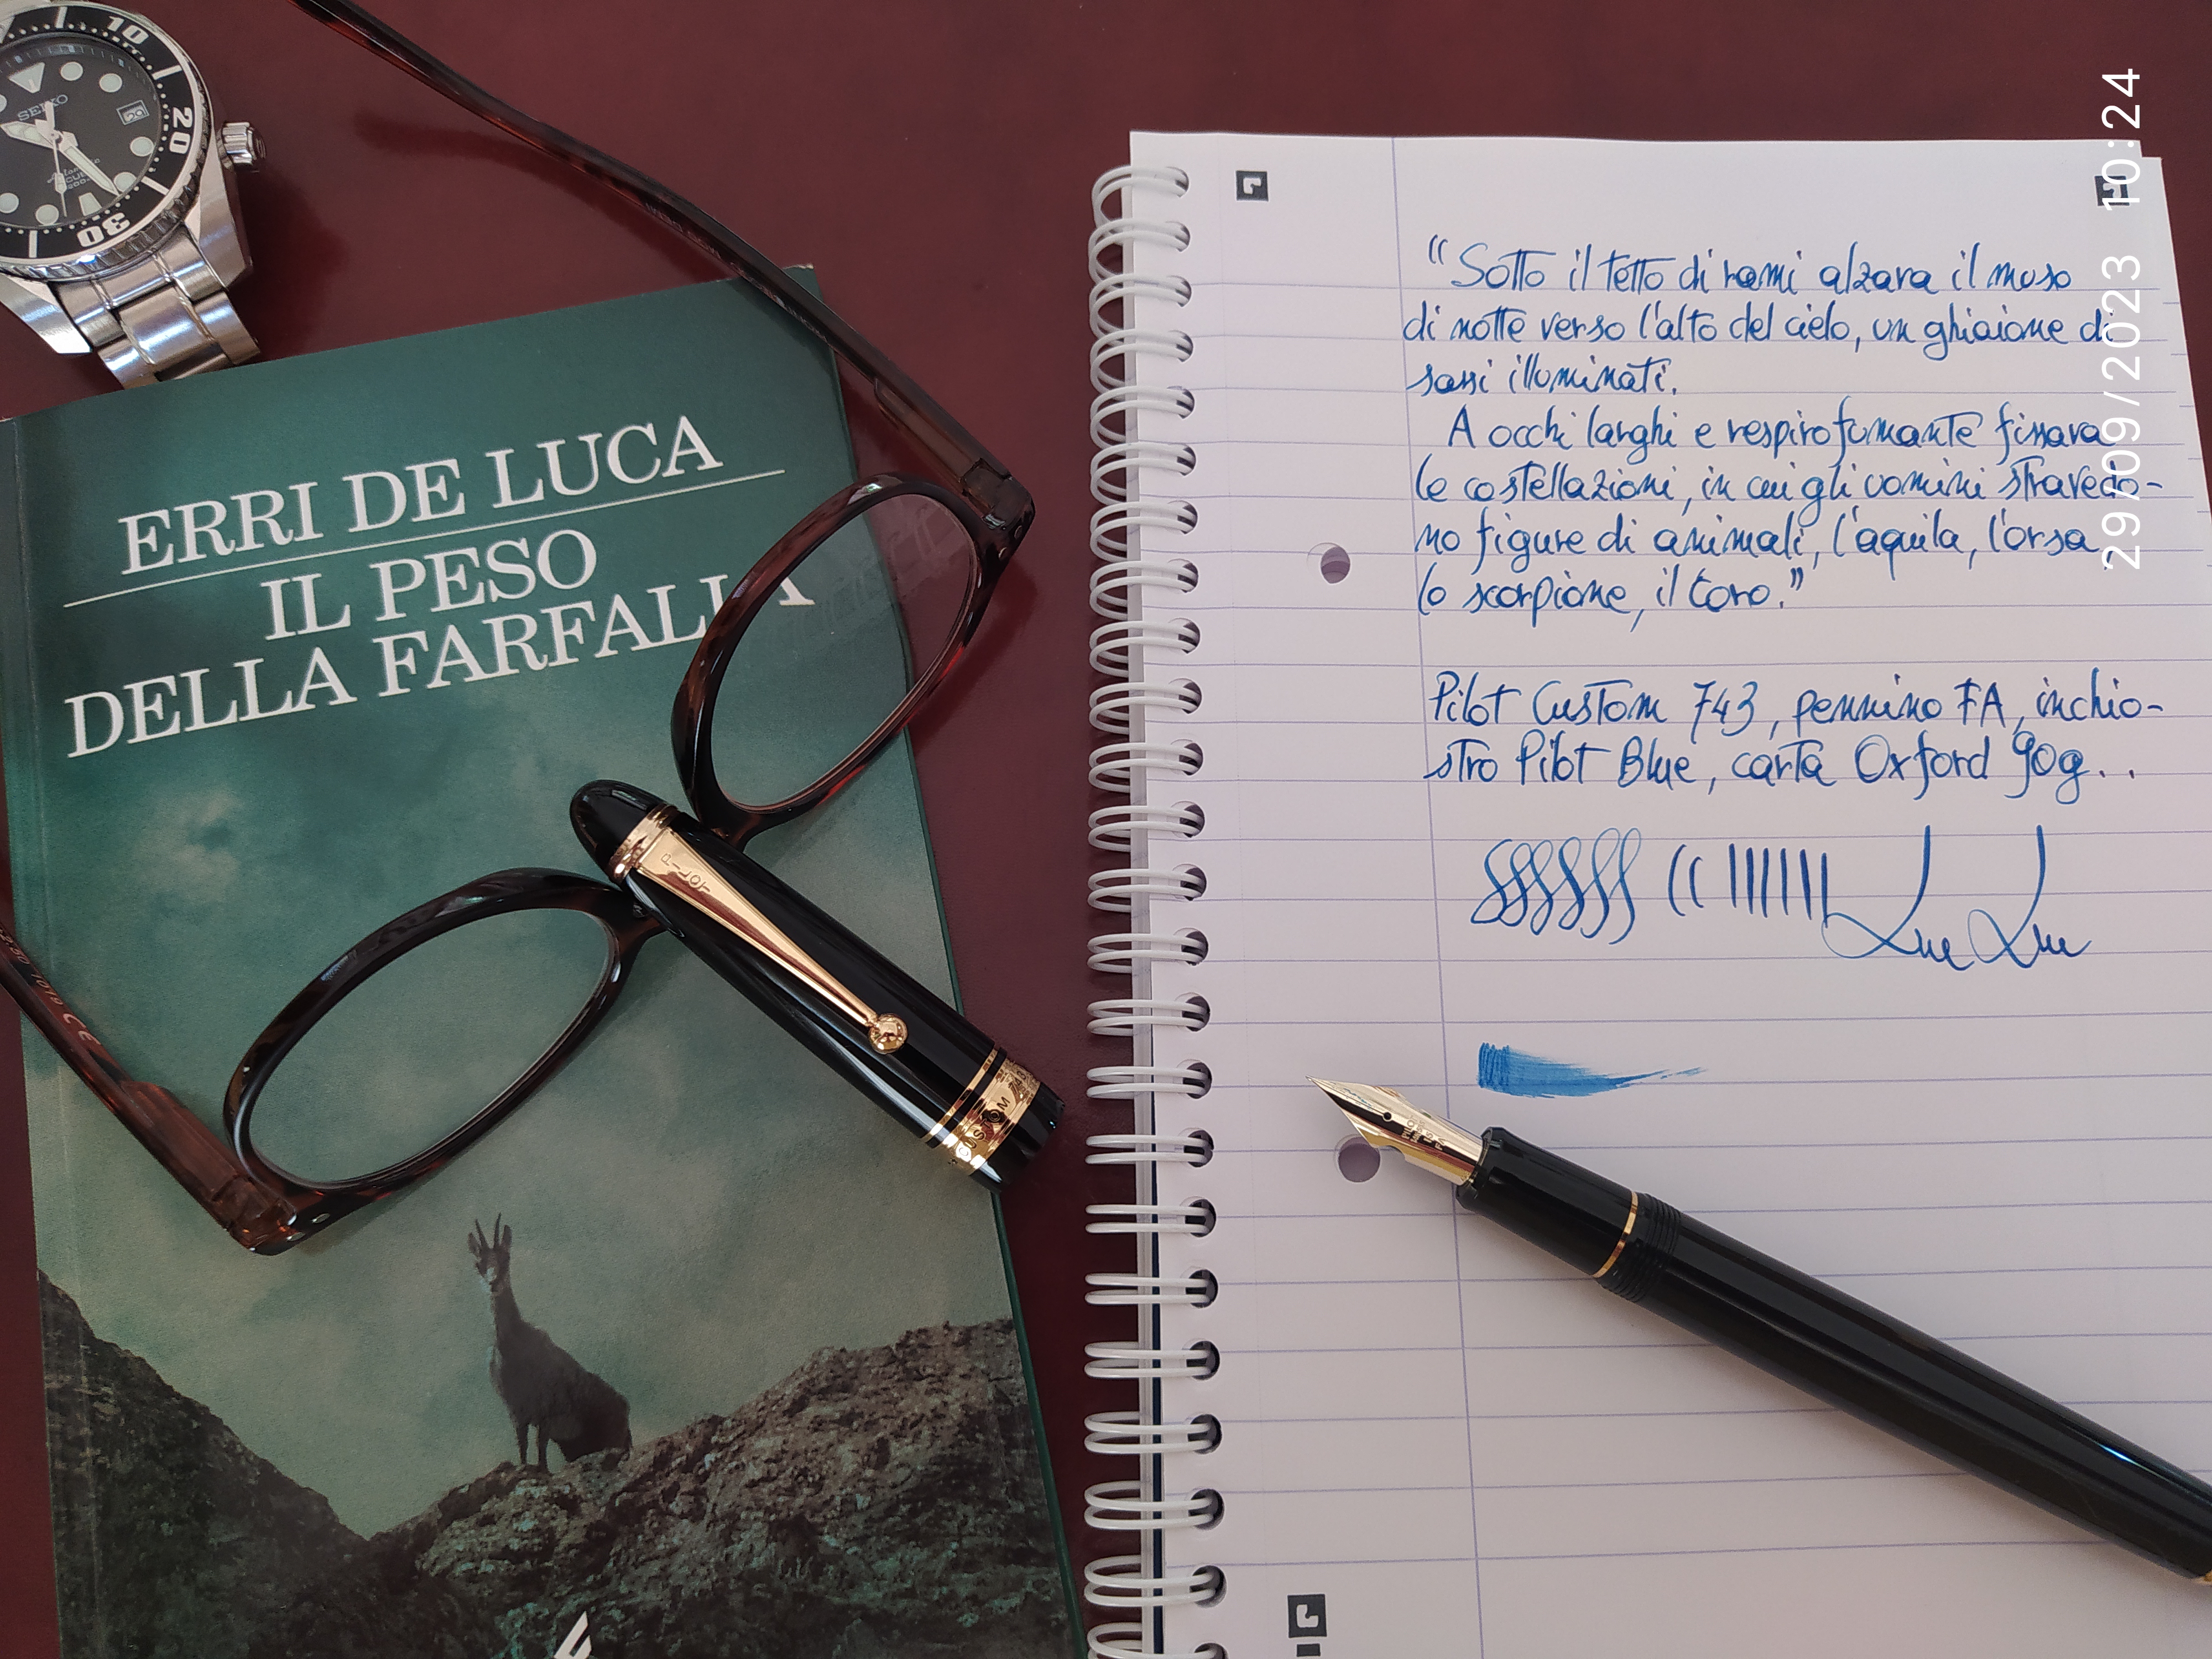 10
20
30
SEIKO
29
ERRI DE LUCA
IL PESO
DELLA FARFALLA
PILOT
CUSTOM 743
CE
“Sotto il tetto di rami alzava il muso
di notte verso l'alto del cielo, un ghiaione di
sassi illuminati.
A occhi larghi e respiro fumante fissava
le costellazioni, in cui gli uomini stravedo-
no figure di animali, l'aquila, l'orsa,
lo scorpione, il toro.”
Pilot Custom 743, pennino FA, inchio-
stro Pilot Blue, carta Oxford 90g..
29/09/2023 10:24